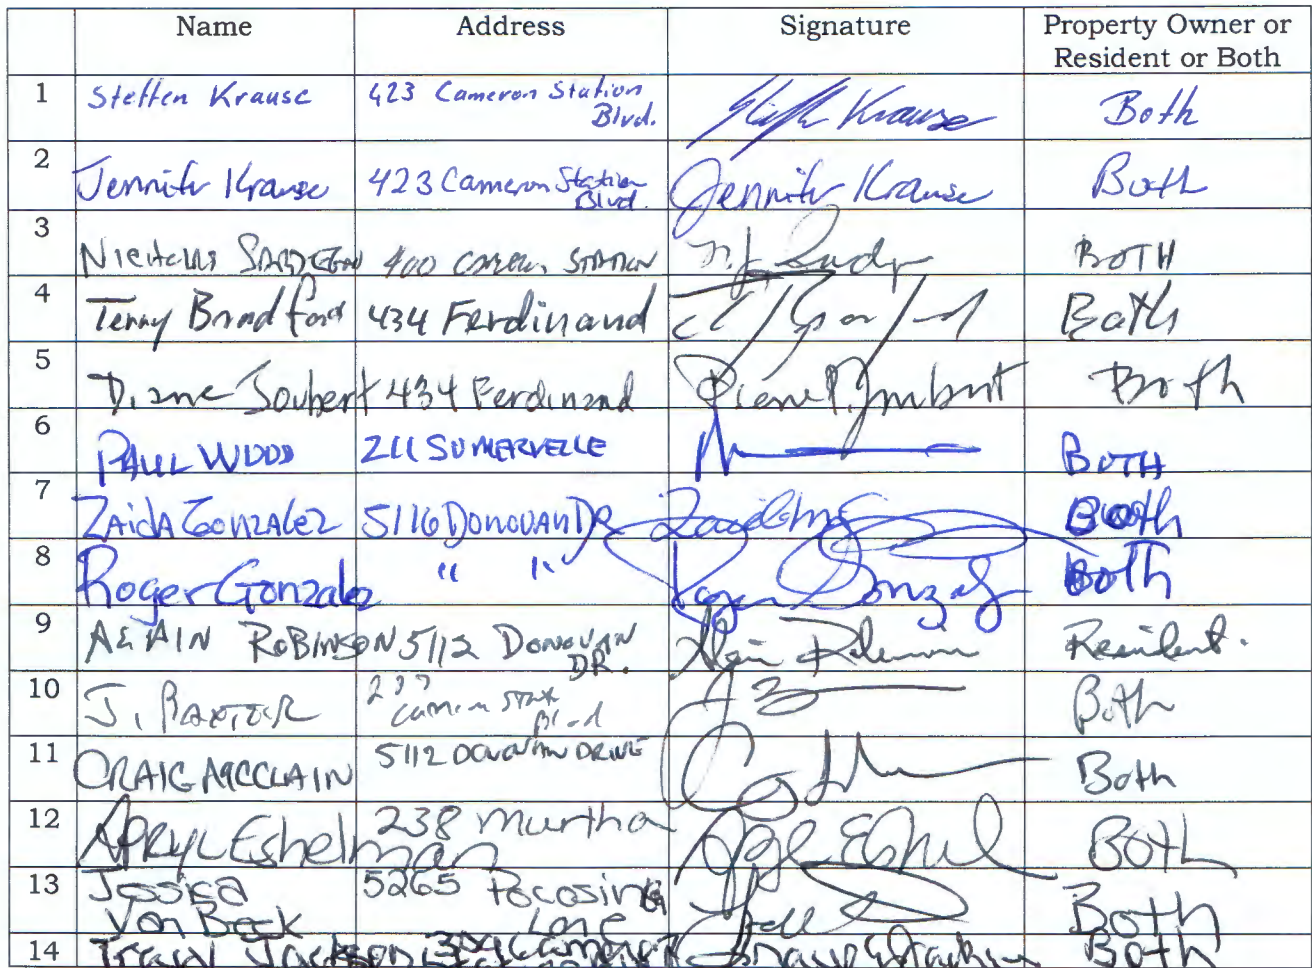 Name Address Signature Property Owner or
Resident or Both
1 Steffen Krause 423 Cameron Station
Blvd. Krause Both
2 Jennifer Krause 423 Cameron Station
Blvd. Jennifer Krause Both
3 400 STATION BOTH
4 Terry Bradford 434 Ferdinand Both
5 Diane Joubert 434 Ferdinand Diane P. Joubert Both
6 PAUL WOOD 211 BOTH
7 ZAIDA GONZALEZ 5116 DONOVAN DR Both
8 Roger Gonzalez " " Roger Gonzalez Both
9 ALAIN ROBINSON 5112 DONOVAN
DR. Alain Robinson Resident.
10 J. BAXTER
Blvd Both
11 CRAIG MCCLAIN 5112 DONOVAN DRIVE Both
12 APRYL Eshelman 238 Murtha Both
13 Jessica
Von Beck 5265 Pocosin
Lane Both
14 Jackson Both